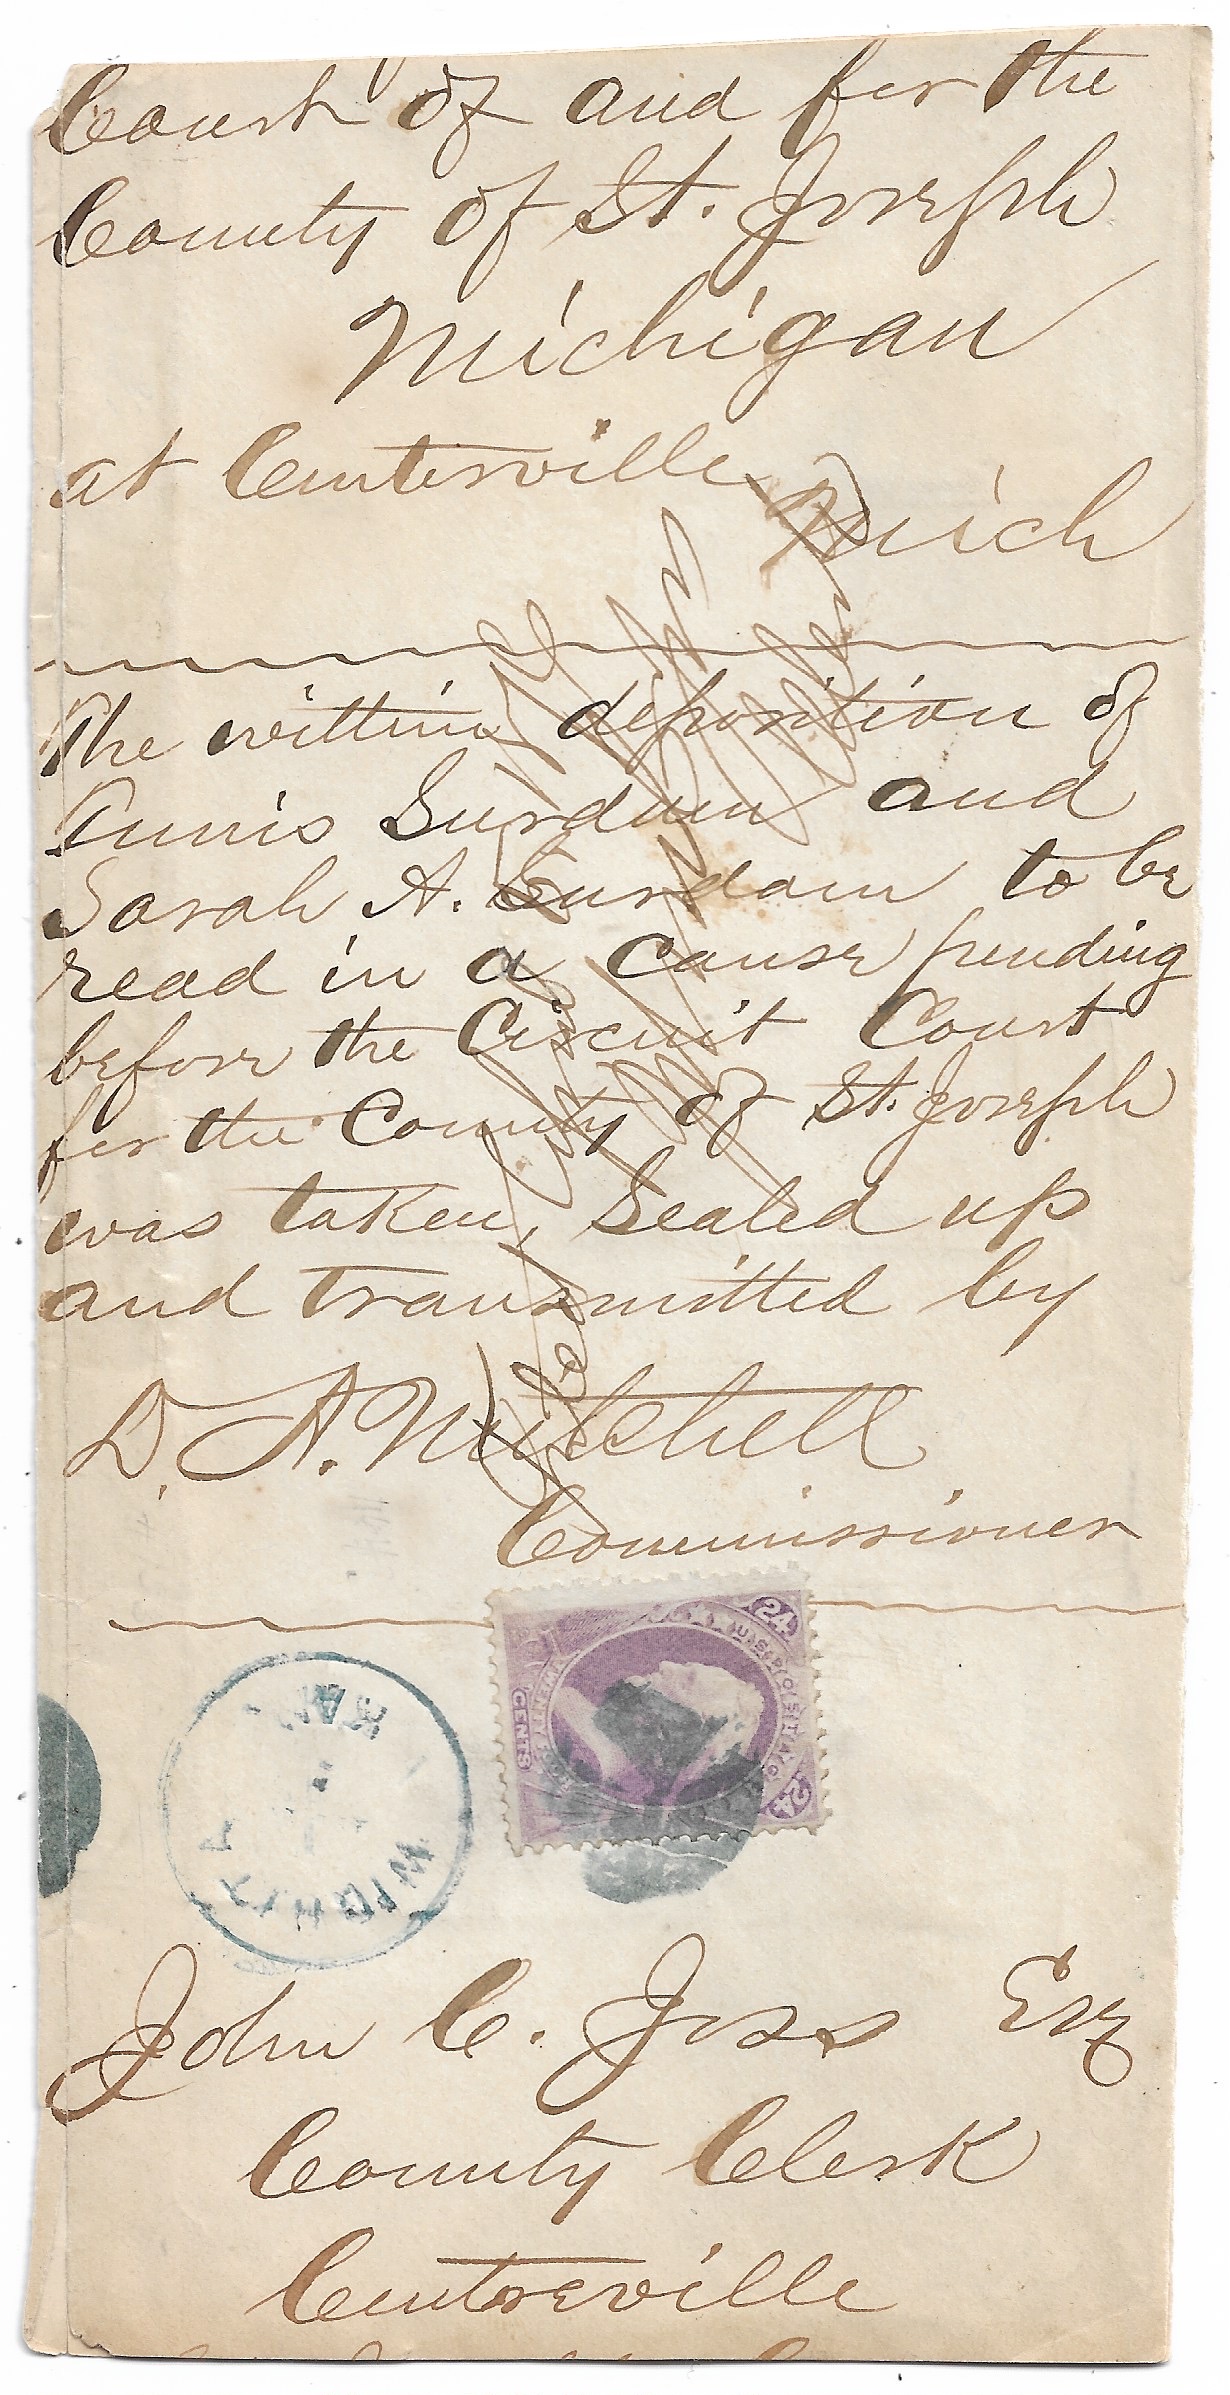 Court of and for the
County of St. Joseph
Michigan
at Centerville
Mich
The within deposition of
Annis Surdam and
Sarah A. Surdam to be
read in a cause pending
before the Circuit Court
for the County of St. Joseph
was taken, Sealed up
and transmitted by
D. A. Mitchell
Commissioner
24
U.S. POSTAGE
TWENTY FOUR
CENTS
24
KAN
John C. Joss Esq
County Clerk
Centreville